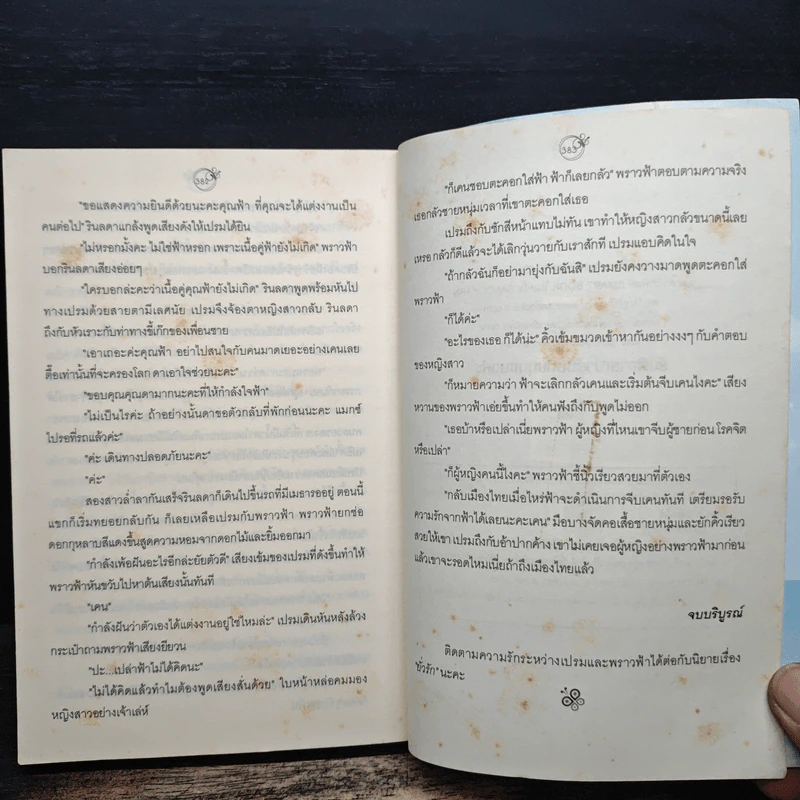 382
"ขอแสดงความยินดีด้วยนะคะคุณฟ้า ที่คุณจะได้แต่งงานเป็น
คนต่อไป" รินลดาแกล้งพูดเสียงดังให้เปรมได้ยิน
"ไม่หรอกมั้งคะ ไม่ใช่ฟ้าหรอก เพราะเนื้อคู่ฟ้ายังไม่เกิด" พราวฟ้า
บอกรินลดาเสียงอ่อยๆ
"ใครบอกล่ะคะว่าเนื้อคู่คุณฟ้ายังไม่เกิด" รินลดาพูดพร้อมหันไป
ทางเปรมด้วยสายตามีเลศนัย เปรมจึงจ้องตาหญิงสาวกลับ รินลดา
ถึงกับหัวเราะกับท่าทางขี้เก๊กของเพื่อนชาย
"เอาเถอะค่ะคุณฟ้า อย่าไปสนใจกับคนมาดเยอะอย่างเคนเลย
ตื๊อเท่านั้นที่จะครองโลก ดาเอาใจช่วยนะคะ"
"ขอบคุณคุณดามากนะคะที่ให้กำลังใจฟ้า"
"ไม่เป็นไรค่ะ ถ้าอย่างนั้นดาขอตัวกลับที่พักก่อนนะคะ แมกซ์
ไปรอที่รถแล้วค่ะ"
"ค่ะ เดินทางปลอดภัยนะคะ"
"ค่ะ"
สองสาวล่ำลากันเสร็จรินลดาก็เดินไปขึ้นรถที่มีเมธารออยู่ ตอนนี้
แขกก็เริ่มทยอยกลับกัน ก็เลยเหลือเปรมกับพราวฟ้า พราวฟ้ายกช่อ
ดอกกุหลาบสีแดงขึ้นสูดความหอมจากดอกไม้และยิ้มออกมา
"กำลังเพ้อฝันอะไรอีกล่ะยัยตัวดี" เสียงเข้มของเปรมที่ดังขึ้นทำให้
พราวฟ้าหันขวับไปหาต้นเสียงนั้นทันที
"เคน"
"กำลังฝันว่าตัวเองได้แต่งงานอยู่ใช่ไหมล่ะ" เปรมเดินหันหลังล้วง
กระเป๋าถามพราวฟ้าเสียงยียวน
"ปะ...เปล่าฟ้าไม่ได้คิดนะ"
"ไม่ได้คิดแล้วทำไมต้องพูดเสียงสั่นด้วย" ใบหน้าหล่อคมมอง
หญิงสาวอย่างเจ้าเล่ห์
383
"ก็เคนชอบตะคอกใส่ฟ้า ฟ้าก็เลยกลัว" พราวฟ้าตอบตามความจริง
เธอกลัวชายหนุ่มเวลาที่เขาตะคอกใส่เธอ
เปรมถึงกับชักสีหน้าแทบไม่ทัน เขาทำให้หญิงสาวกลัวขนาดนี้เลย
เหรอ กลัวก็ดีแล้วจะได้เลิกวุ่นวายกับเราสักที เปรมแอบคิดในใจ
"ถ้ากลัวฉันก็อย่ามายุ่งกับฉันสิ" เปรมยังคงวางมาดพูดตะคอกใส่
พราวฟ้า
"ก็ได้ค่ะ"
"อะไรของเธอ ก็ได้น่ะ" คิ้วเข้มขมวดเข้าหากันอย่างงงๆ กับคำตอบ
ของหญิงสาว
"ก็หมายความว่า ฟ้าจะเลิกกลัวเคนและเริ่มต้นจีบเคนไงคะ" เสียง
หวานของพราวฟ้าเอ่ยขึ้นทำให้คนฟังถึงกับพูดไม่ออก
"เธอบ้าหรือเปล่าเนี่ยพราวฟ้า ผู้หญิงที่ไหนเขาจีบผู้ชายก่อน โรคจิต
หรือเปล่า"
"ก็ผู้หญิงคนนี้ไงคะ" พราวฟ้าชี้นิ้วเรียวสวยมาที่ตัวเอง
"กลับเมืองไทยเมื่อไหร่ฟ้าจะดำเนินการจีบเคนทันที เตรียมรอรับ
ความรักจากฟ้าได้เลยนะคะเคน" มือบางจัดคอเสื้อชายหนุ่มและยักคิ้วเรียว
สวยให้เขา เปรมถึงกับอ้าปากค้าง เขาไม่เคยเจอผู้หญิงอย่างพราวฟ้ามาก่อน
แล้วเขาจะรอดไหมเนี่ยถ้าถึงเมืองไทยแล้ว
จบบริบูรณ์
ติดตามความรักระหว่างเปรมและพราวฟ้าได้ต่อกับนิยายเรื่อง
"ยั่วรัก" นะคะ